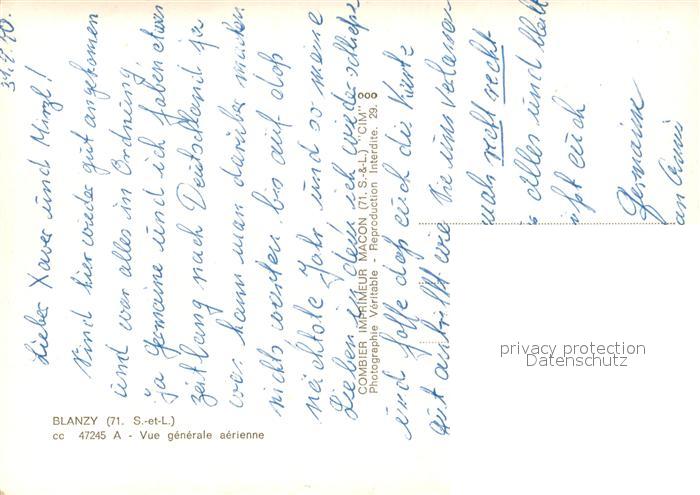 31.8.70.
Lieber Xaver und Mirzl!
Sind hier wieder gut angekomen
und war alles in Ordnung
ja Germaine und ich haben etwas
zeitlang nach Deutschland ja
wer kann man darüber machen
nichts warten bis auf das
nächtste Jahr und so meine
Lieben
ich wieder schliese
und hoffe das euch die Kürte
gut
wie Sie uns verlassen
recht recht
alles und bleibt
euch
Germaine
COMBIER IMPRIMEUR MACON (71. S.-&-L.) "CIM"
Photographie Véritable - Reproduction Interdite. 29.
BLANZY (71. S.-et-L.)
cc 47245 A - Vue générale aérienne
privacy protection
Datenschutz